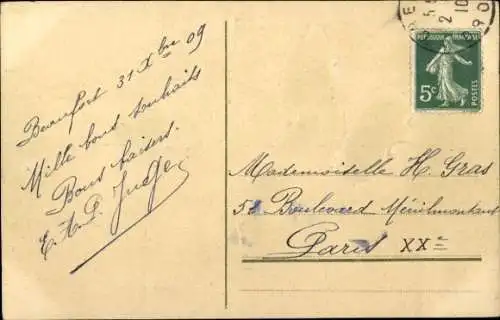 Beaufort 31 Xbre 09
Mille bons souhaits
Bons baisers.
E. A. P. Juge
RÉPUBLIQUE FRANÇAISE
5c
POSTES
Mademoiselle H. Gras
58 Boulevard Ménilmontant
Paris XXe